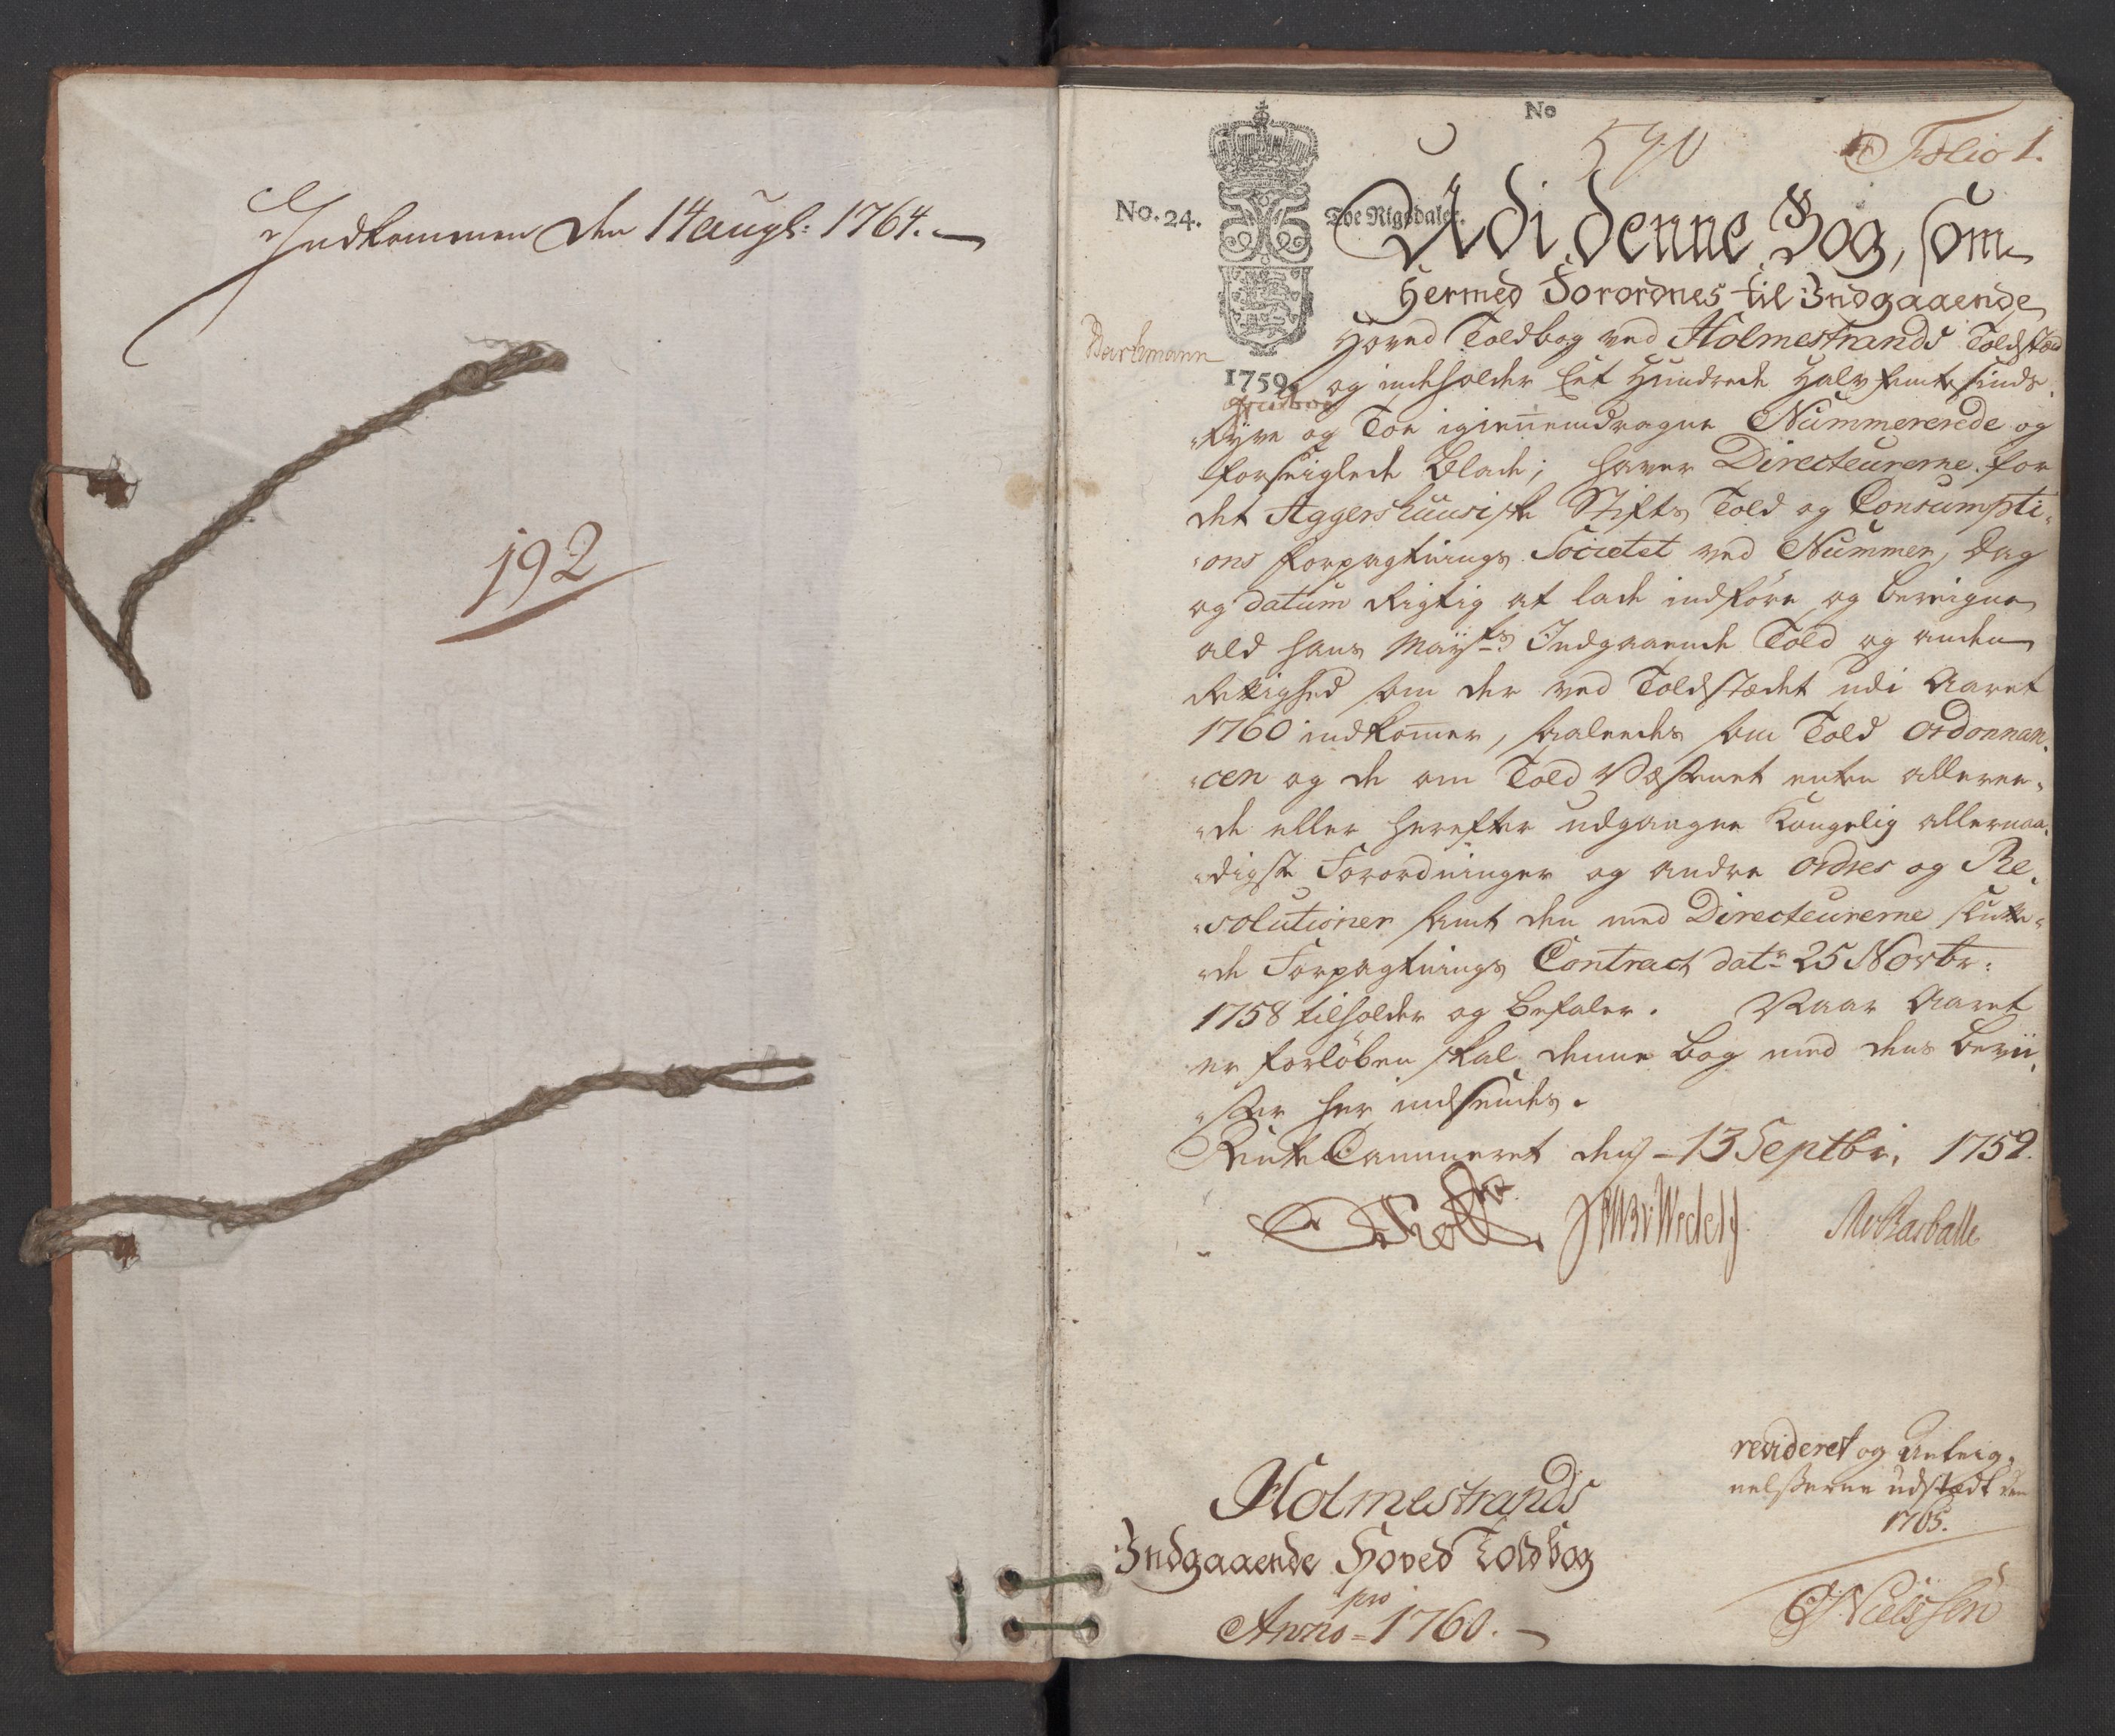 Indkommen den 14 augt: 1764.
192
No
590
Folio 1.
No. 24.
Toe Rigsdaler.
Udi denne Bog, som
Hermed Forordnes til Indgaaende
Hoved Toldbog ved Holmestrands Toldstæd
Bartmann
1759.
og indeholder Eet Hundrede Halvfemtesinds
tyve og Toe igiennemdragne Nummererede og
forseiglede Blade; haver Directeurerne for
det Aggershuusiske Stifts Told og Consumpti-
ons Forpagtnings Societet ved Nummer, Dag
og datum Rigtig at lade indføre og bereigne
ald Hans Mayts Indgaaende Told og anden
Rettighed som der ved Toldstædet udi Aaret
1760 indkommer, saaledes som Told ordonnan-
cen og de om Told Væsenet enten alleree-
de eller herefter udgangne Kongelig allernaa-
digste Forordninger og andre ordres og Re-
solutioner samt den med Directeurerne slutte-
de Forpagtnings Contract datr 25 Novbr:
1758 tilholder og befaler. Naar Aaret
er forløben skal denne bog med dens bevii-
ser her indsendes.
Rente Cammeret den 13 Septbr. 1759.
Holmestrands
Indgaaende Hoved Toldbog
pro
Anno 1760.
revideret og Anteig-
nelserne udstædt den
1765.
Nielssen